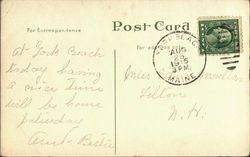 Post Card
For Correspondence
For address only
At York Beach
today having
a nice time
will be home
Saturday
Aunt Bertie
YORK BEACH
AUG
25
3 PM
MAINE
Miss
Tilton
N.H.